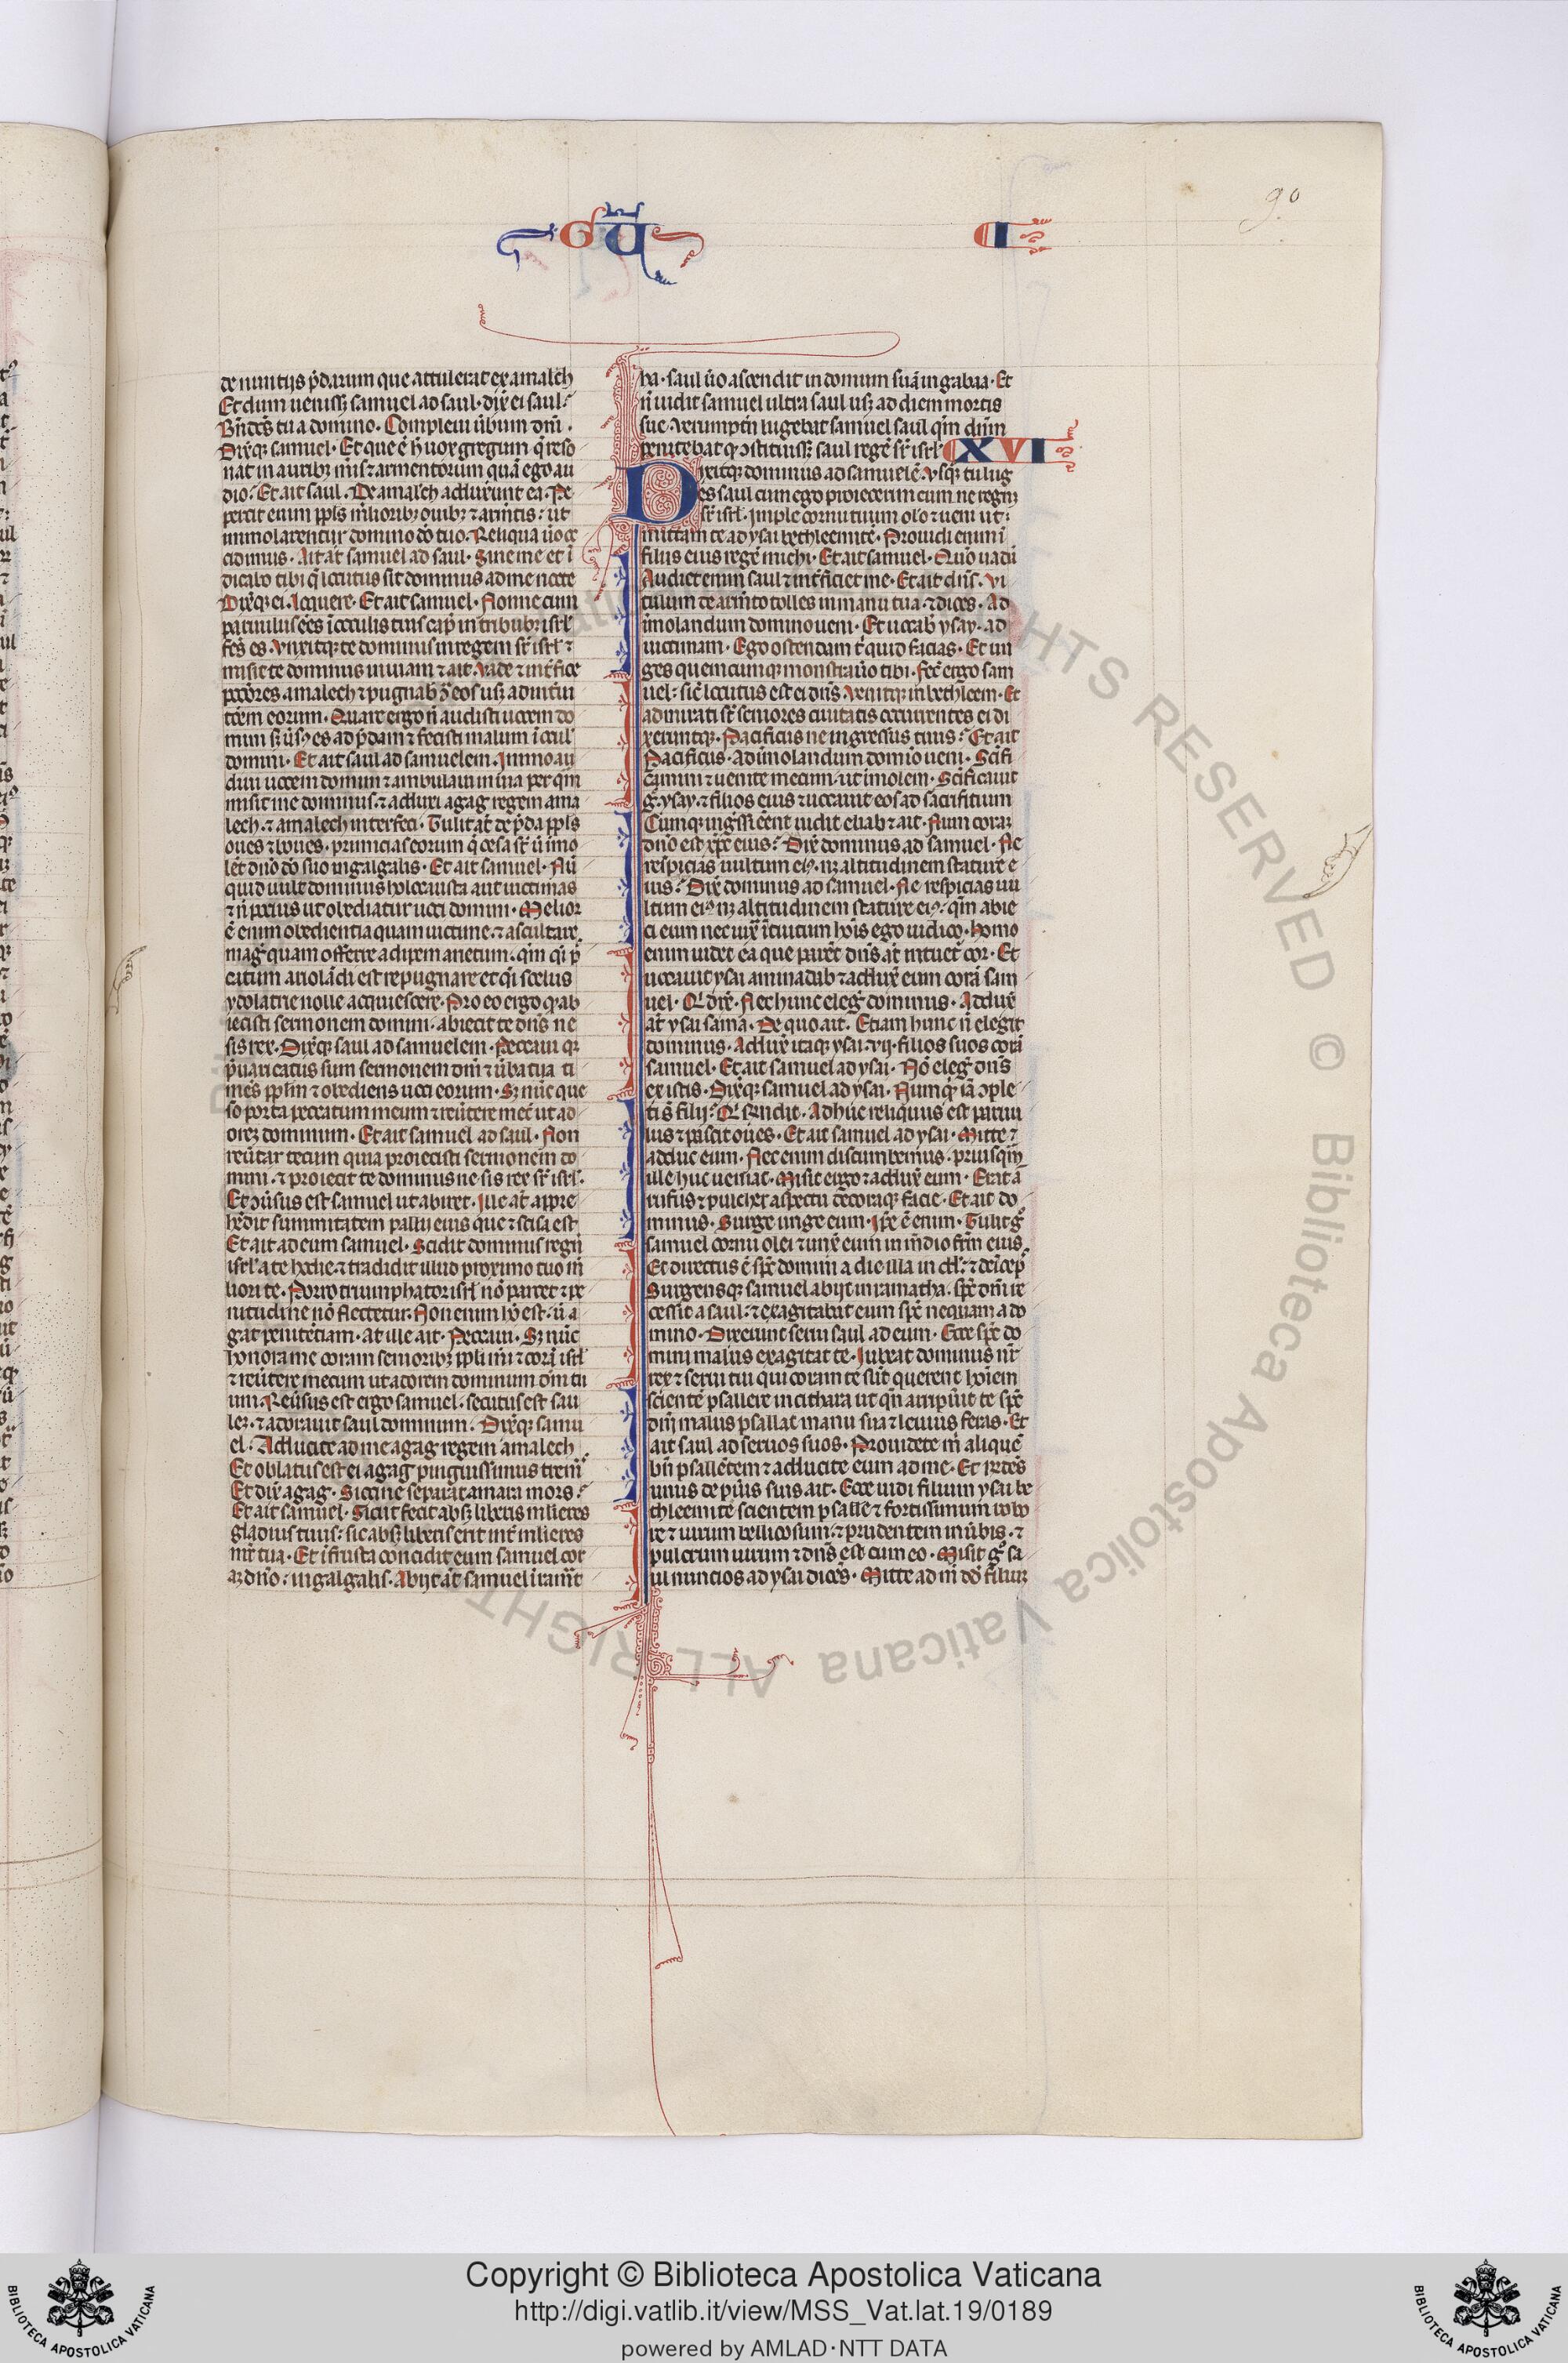 GŪ
I
90
de nuntijs p̄darum que attulerat ex amalech
Et dum uenissꝫ samuel ad saul· dix̄ ei saul·
Bn̄dct̄s tu a domino· Compleui ūbum dn̄i·
Dix̄qꝫ samuel· Et que ē h̄ uox gregum q̄ reso
nat in auribꝫ mīs ⁊ armentorum quā ego au
dio? Et ait saul· De amalech adduxerunt ea· Pe
percit enim ppl̄s mlioribꝫ ouibꝫ ⁊ arm̄tis· ut
immolarentur domino dō tuo· Reliqua ūo oc
cidimus· Ait aūt samuel ad saul· Sine me et ī
dicabo tibi q̄ locutus sit dominus ad me nocte
Dix̄qꝫ ei· Loquere· Et ait samuel· Nonne cum
paruulus ēes ī occulis tuis cap̄ in tribubꝫ isrl̄
fc̄s es· Vnxitqꝫ te dominus in regem sr̄ isrl̄ ⁊
misit te dominus in uiam ⁊ ait· Vade ⁊ int̄fice
pccōres amalech ⁊ pugnab̄ ꝯ̄ eos usꝫ ad int̄ni
tōem eorum· Quare ergo n̄ audisti uocem do
mini sꝫ ūsꝰ es ad p̄dam ⁊ fecisti malum ī ocul̄
domini· Et ait saul ad samuelem· Immo au
diui uocem domini ⁊ ambulaui in uia per qm̄
misit me dominus· ⁊ adduxi agag regem ama
lech· ⁊ amalech interfeci· Tulit aūt de p̄da ppl̄s
oues ⁊ boues· primicias eorum q̄ cesa st̄ ū imo
let dn̄o dō suo in galgalis· Et ait samuel· Nū
quid uult dominus holocausta aut uictimas
⁊ n̄ pocius ut obediatur uoci domini· Melior
ē enim obedientia quam uictime· ⁊ ascultare
maḡ quam offerre adipem arietum· qm̄ q̄i p̄
catum ariolādi est repugnare et q̄i scelus
ydolatrie nolle acquiescere· Pro eo ergo qꝫ ab
iecisti sermonem domini· abiecit te dn̄s ne
sis rex· Dix̄qꝫ saul ad samuelem· Peccaui qꝛ
p̄uaricatus sum sermonem dn̄i ⁊ ūba tua ti
mēs ppl̄m ⁊ obediens uoci eorum· Sꝫ nūc que
so porta peccatum meum ⁊ reūtere mec̄ ut ad
oreꝫ dominum· Et ait samuel ad saul· Non
reūtar tecum quia proiecisti sermonem do
mini· ⁊ proiecit te dominus ne sis rex sr̄ isrl̄·
Et ꝯūsus est samuel ut abiret· Ille aūt appre
hēdit summitatem pallij eius que ⁊ scisa est
Et ait ad eum samuel· Scidit dominus regn̄
isrl̄ a te hodie· ⁊ tradidit illud proximo tuo m̄
liori te· Porro triumphator isrl̄ nō parcet ⁊ pe
nitudine nō flectetur· Non enim hō est· ū a
gat penitētiam· At ille ait· Peccaui· Sꝫ nūc
honora me coram senioribꝫ ppl̄i mī ⁊ corā isrl̄
⁊ reūtere mecum ut adorem dominum dm̄ tu
um· Reūsus est ergo samuel· secutus est sau
leꝫ· ⁊ adorauit saul dominum· Dix̄qꝫ samu
el· Adducite ad me agag regem amalech
Et oblatus est ei agag pinguissimus trem̄
Et dix̄ agag· Siccine separat amara mors·
Et ait samuel· Sicut fecit absqꝫ liberis mlieres
gladius tuus· sic absqꝫ liberis erit int̄ mlieres
mr̄ tua· Et ī frusta concidit eum samuel cor
aꝫ dn̄o· in galgalis· Abijt aūt samuel ī ramat
ba· saul ūo ascendit in domum suā in gabaa· Et
n̄ uidit samuel ultra saul usqꝫ ad diem mortis
sue· Verumptn̄ lugebat samuel saul qm̄ dn̄m
penitebat qꝫ ꝯstituissꝫ saul regē sr̄ isrl̄
XVI
Dixitqꝫ dominus ad samuelē· Vsqꝫ quo tu lug
es saul cum ego proiecerim eum ne regnꝫ
sr̄ isrl̄· Imple cornu tuum oleo ⁊ ueni ut·
mittam te ad ysai bethleemitē· Prouidi enim ī
filiis eius regē michi· Et ait samuel· Quō uadā
Audiet enim saul ⁊ int̄ficiet me· Et ait dn̄s· Vi
tulum de arm̄to tolles in manu tua· ⁊ dices· Ad
īmolandum domino ueni· Et uocab̄ ysay· ad
uictimam· Ego ostendam t̄ quid facias· Et un
ges quemcumqꝫ monstrauero tibi· Fec̄ ergo sam
uel· sic̄ locutus est ei dn̄s Venitqꝫ in bethleem· Et
admirati st̄ seniores ciuitatis occurrentes ei di
xeruntqꝫ· Pacificus ne ingressus tuus? Et ait
Pacificus· Ad īmolandum domīo ueni· Sc̄ifi
camini ⁊ uenite mecum· ut īmolem· Sc̄ificauit
g̊ ysay· ⁊ filios eius ⁊ uocauit eos ad sacrifitium
Cumqꝫ ingressi ēent uidit eliab ⁊ ait· Num coraꝫ
dn̄o est xp̄c eius? Dix̄ dominus ad samuel· Ne
respicias uultum eiꝰ· nꝫ altitudinem stature e
ius? Dix̄ dominus ad samuel· Ne respicias uu
ltum eiꝰ nꝫ altitudinem stature eiꝰ· qm̄ abie
ci eum nec iuxͣ ītuitum hoīs ego iudico· Homo
enim uidet ea que parēt dn̄s aūt intuet̄ cor· Et
uocauit ysai aminadab ⁊ addux̄ eum corā sam
uel· Qi dix̄· Nec hunc eleḡ dominus· Addux̄
aūt ysai sama· De quo ait· Etiam hunc n̄ elegit
dominus· Addux̄ itaqꝫ ysai· vij· filios suos corā
samuel· Et ait samuel ad ysai· Nō eleḡ dn̄s
ex istis· Dix̄qꝫ samuel ad ysai· Numqꝫ iā ꝯple
ti s̄ filij? Qi rn̄dit· Adhuc reliquus est paruu
lus ⁊ pascit oues· Et ait samuel ad ysai· Mitte ⁊
adduc eum· Nec enim discumbemus· priusqm̄
ille huc ueniat· Misit ergo ⁊ addux̄ eum· Erat ā
rufus ⁊ pulcher aspectu decoraqꝫ facie· Et ait do
minus· Surge unge eum· Ip̄e ē enim· Tulit g̊
samuel cornu olei ⁊ unx̄ eum in m̄dio fr̄m eius
Et directus ē sp̄c domini a die illa in dd̄· ⁊ deīcep̄
Surgensqꝫ samuel abijt in ramatha· sp̄c dn̄i re
cessit a saul· ⁊ exagitabat eum sp̄c nequam a do
mino· Dixerunt serui saul ad eum· Ecce sp̄c do
mini malus exagitat te· Iubeat dominus nr̄
rex ⁊ serui tui qui coram te sūt querent hoīem
scientē psallere in cithara ut qn̄ arripūit te sp̄c
dn̄i malus psallat manu sua ⁊ leuius feras· Et
ait saul ad seruos suos· Prouidete m̄ aliquē
bn̄ psallētem ⁊ adducite eum ad me· Et rn̄dēs
unus de pūis suis ait· Ecce uidi filium ysai be
thleemitē scientem psallē ⁊ fortissimum robo
re ⁊ uirum bellicosum· ⁊ prudentem in ūbis· ⁊
pulcrum uirum ⁊ dn̄s est cum eo· Misit g̊ sa
ul nuncios ad ysai dicēs· Mitte ad m̄ dd̄ filiuꝫ
Copyright © Biblioteca Apostolica Vaticana
http://digi.vatlib.it/view/MSS_Vat.lat.19/0189
powered by AMLAD·NTT DATA
BIBLIOTECA APOSTOLICA VATICANA
BIBLIOTECA APOSTOLICA VATICANA